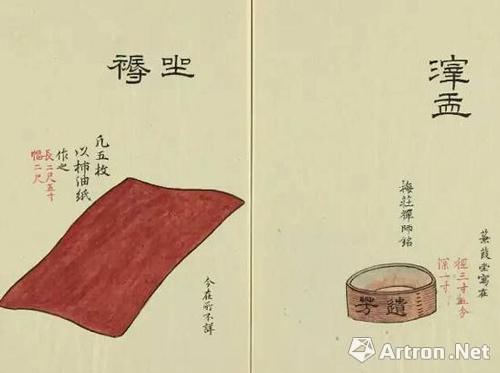 滓盂
蒹葭堂寫在
徑三寸五分
深一寸
梅莊禪師銘
遺芳
坐褥
凡五枚
以柿油紙
作之
長二尺五寸
幅二尺
今在所不詳
Artron.Net